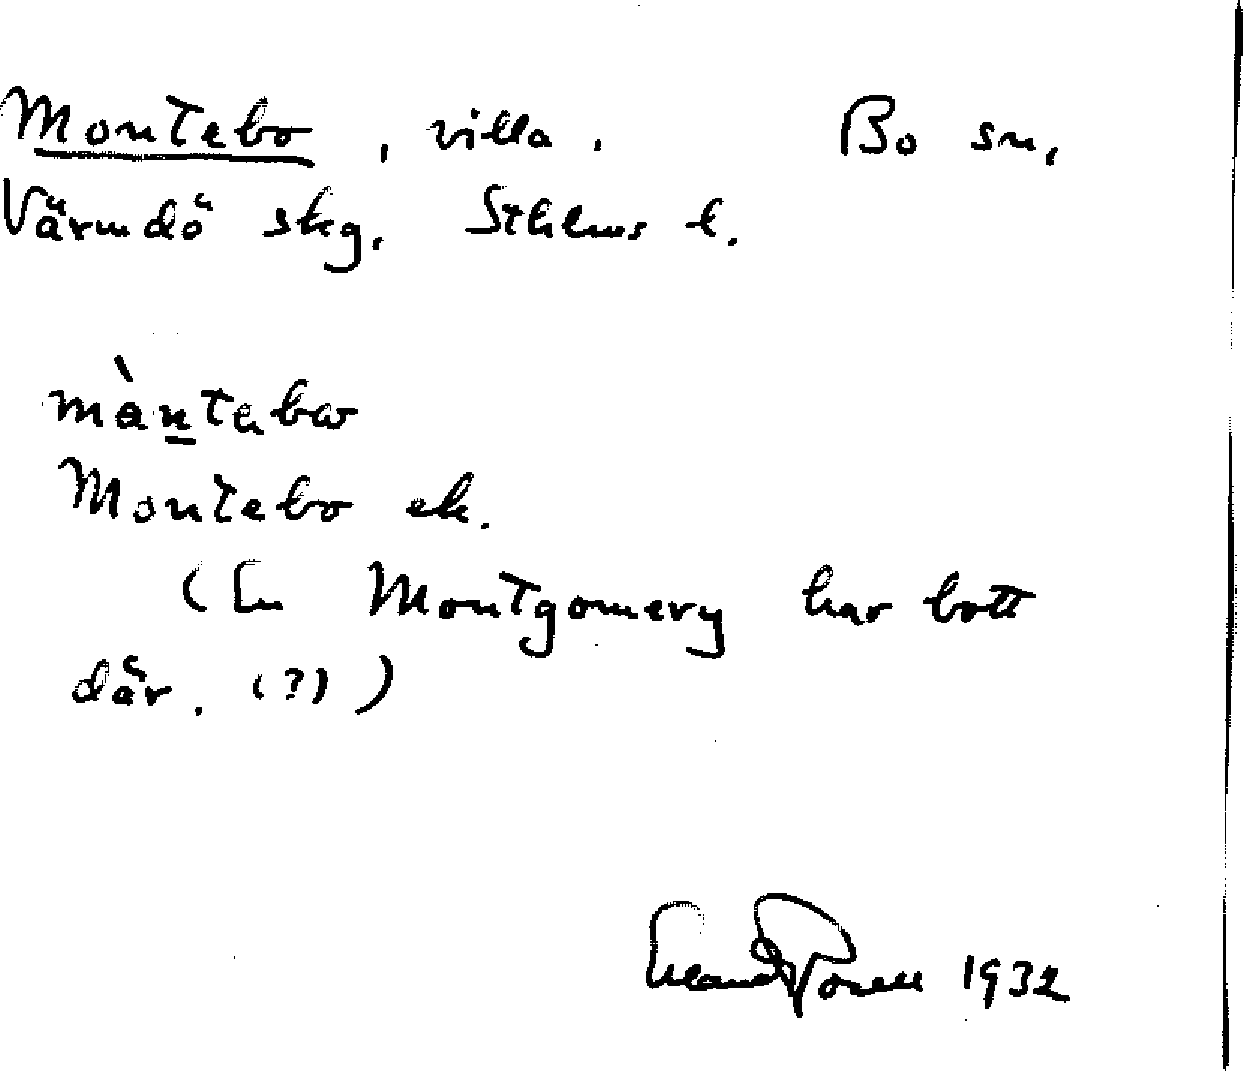 Montebo, villa. Bo sn,
Värmdö skg, Sthlms l.
màntebω
Montebo ek.
(En Montgomery har bott
där. (?))
Erland Rosell 1932